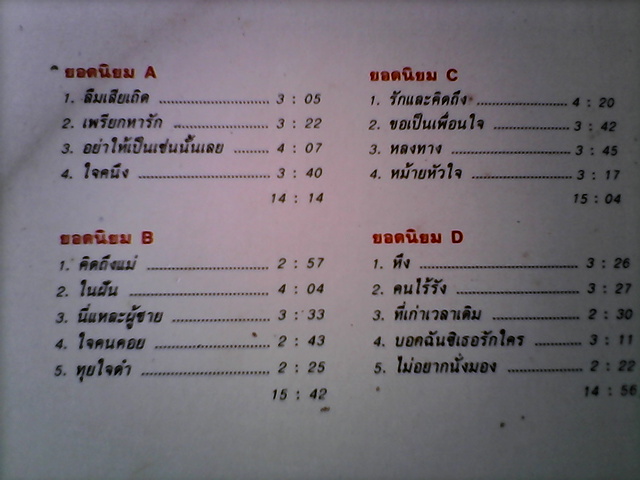 ยอดนิยม A
1. ลืมเสียเถิด ........................ 3 : 05
2. เพรียกหารัก ..................... 3 : 22
3. อย่าให้เป็นเช่นนั้นเลย ........ 4 : 07
4. ใจคนึง ............................. 3 : 40
14 : 14
ยอดนิยม B
1. คิดถึงแม่ ........................... 2 : 57
2. ในฝัน ............................... 4 : 04
3. นี่แหละผู้ชาย ..................... 3 : 33
4. ใจคนคอย ......................... 2 : 43
5. ทุยใจดำ ............................ 2 : 25
15 : 42
ยอดนิยม C
1. รักและคิดถึง .................... 4 : 20
2. ขอเป็นเพื่อนใจ ................... 3 : 42
3. หลงทาง ........................... 3 : 45
4. หม้ายหัวใจ ....................... 3 : 17
15 : 04
ยอดนิยม D
1. หึง .................................... 3 : 26
2. คนไร้รัง ............................ 3 : 27
3. ที่เก่าเวลาเดิม .................... 2 : 30
4. บอกฉันซิเธอรักใคร ............. 3 : 11
5. ไม่อยากนั่งมอง .................. 2 : 22
14 : 56